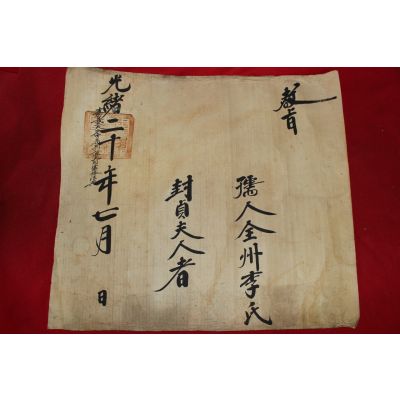 敎旨
孺人全州李氏
封貞夫人者
光緖二十年七月 日